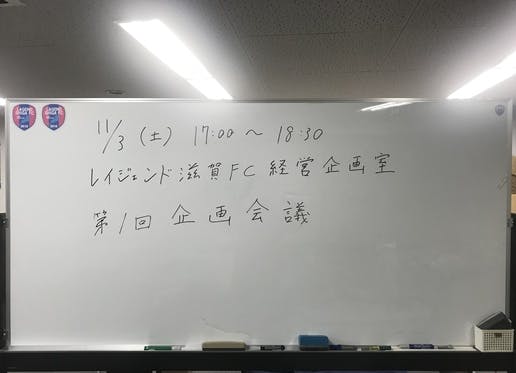 11/3 (土) 17:00 〜 18:30
レイジェンド滋賀FC 経営企画室
第1回 企画会議